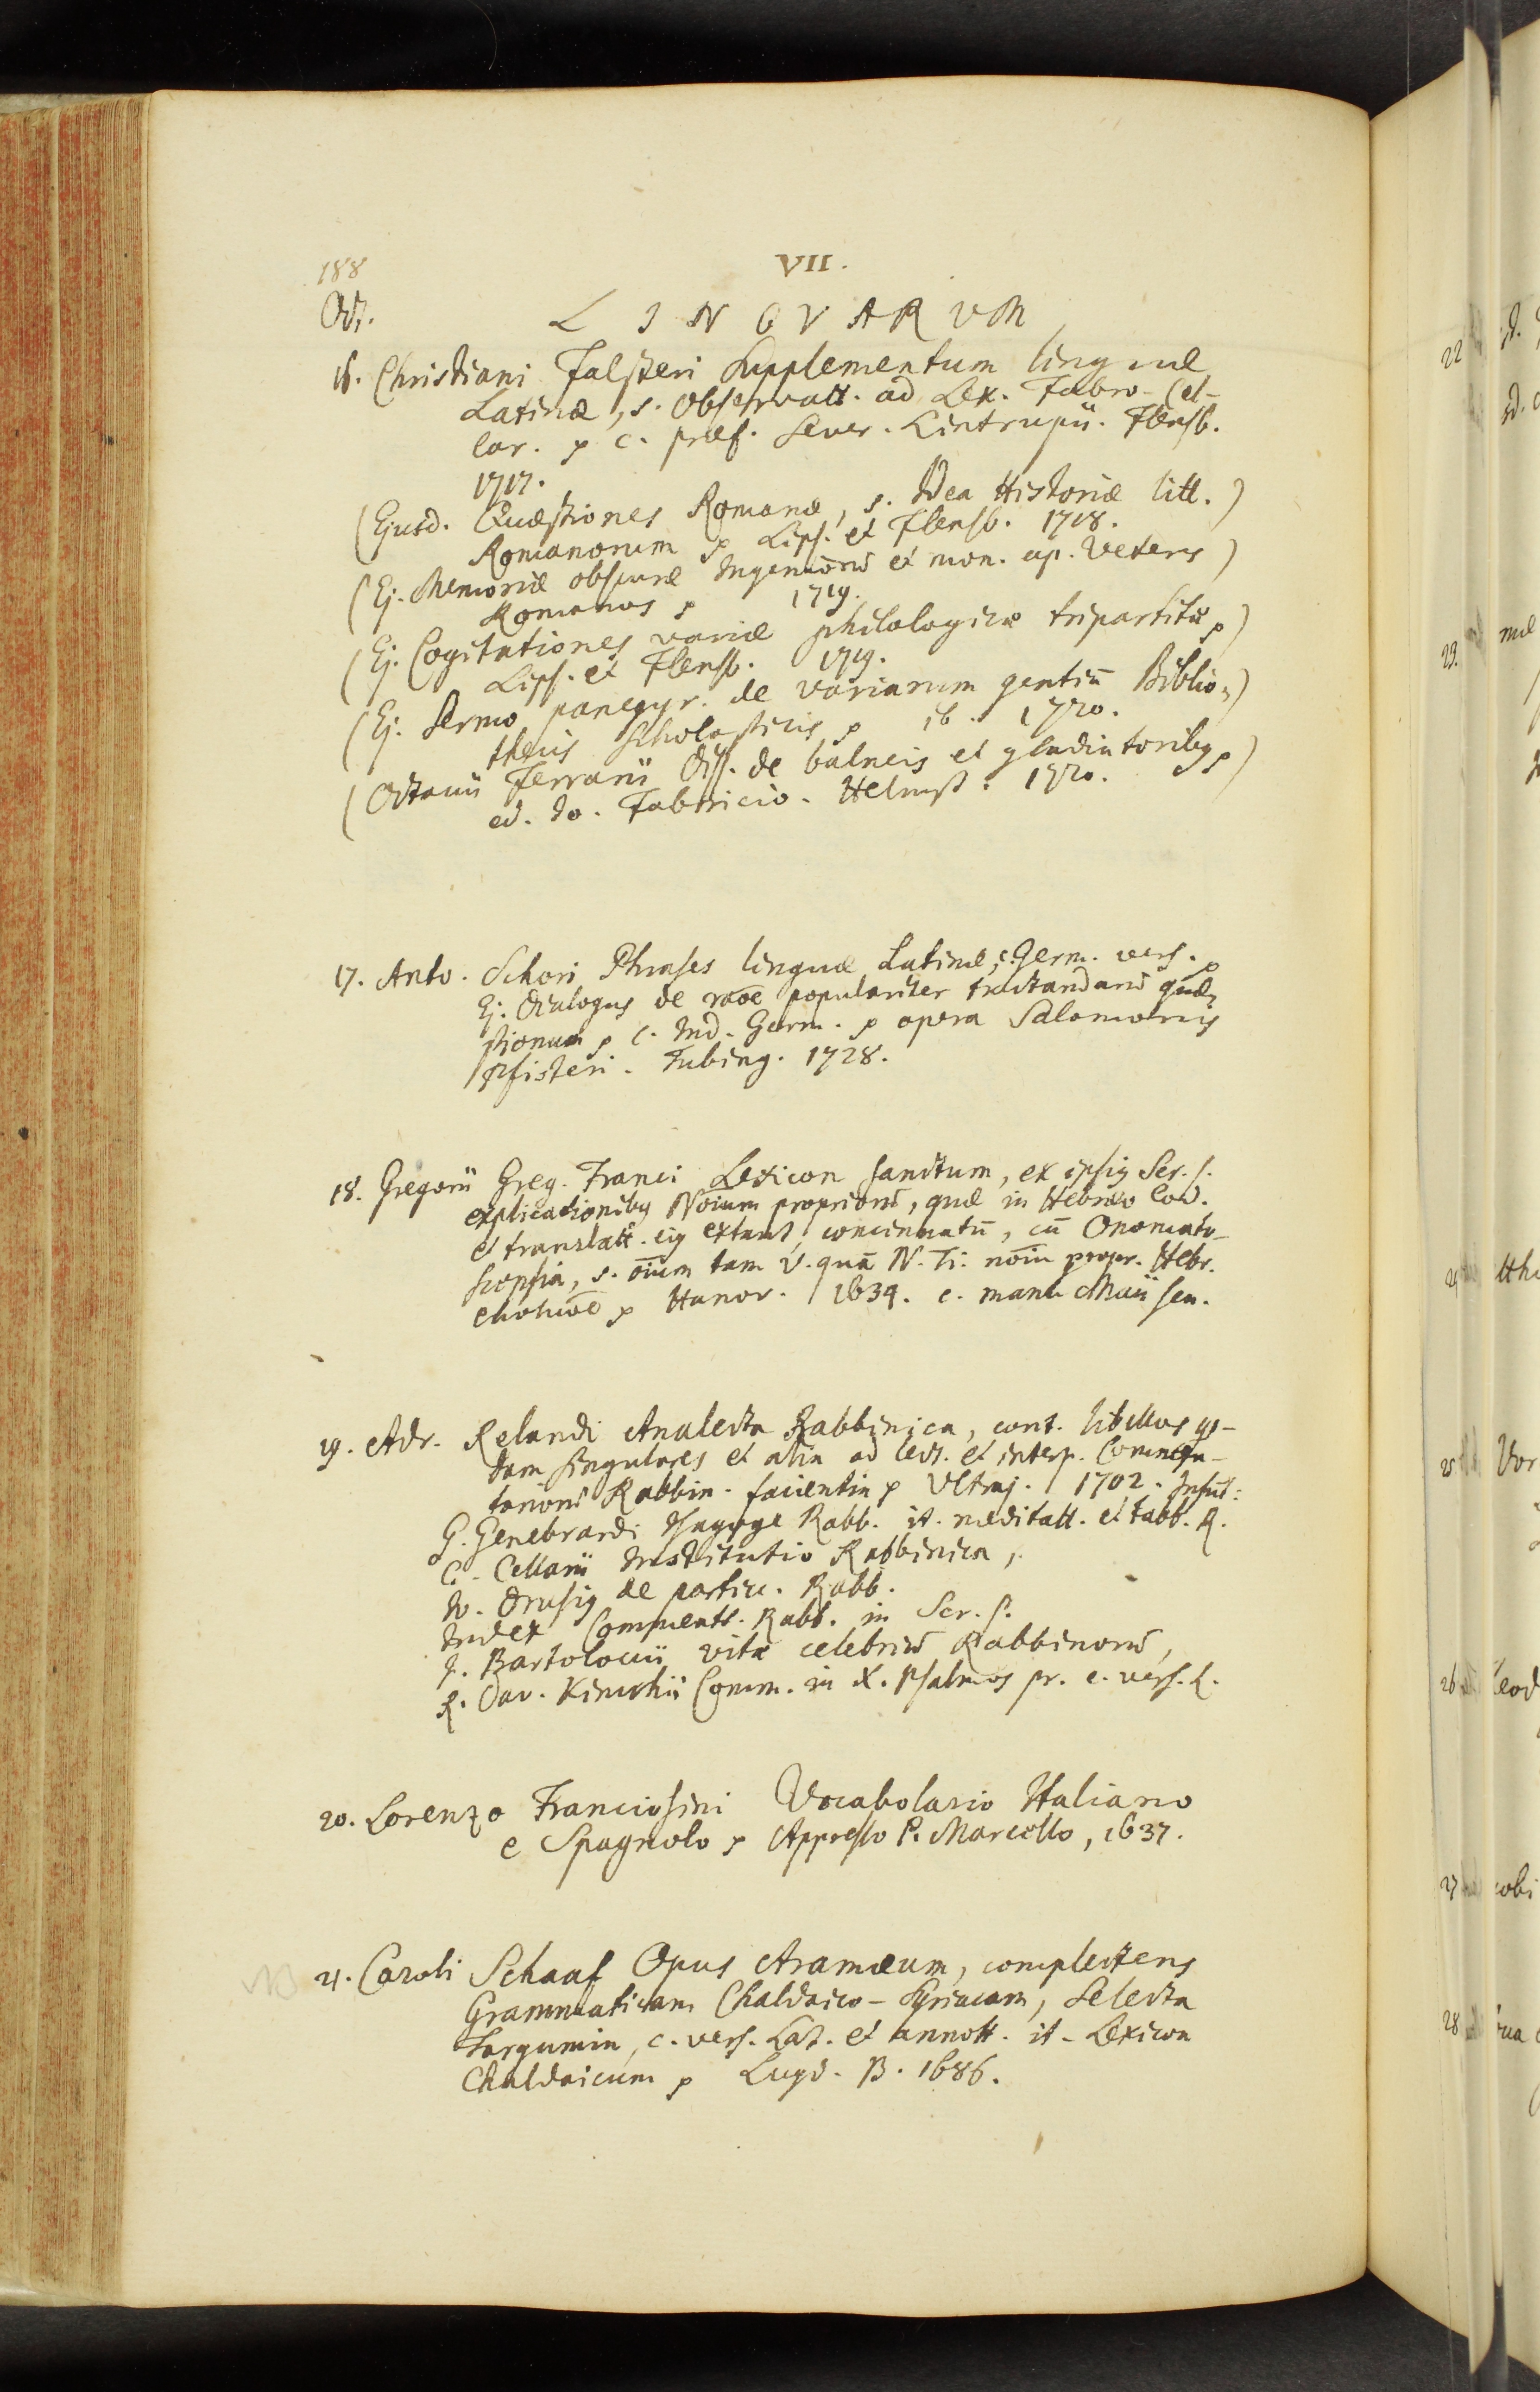 188
VII.
Oct.
LINGVARVM
16. Christiani Falsteri Supplementum linguæ
Latinæ, s. Observatt. ad Lex. Fabro-Cel-
lar. p c. præf. Sever. Lintrupii. Flensb.
1717.
(Ejusd. Quæstiones Romanæ, s. Idea Historiæ litt.)
Romanorum p Lips. et Flensb. 1718.
(Ej. Memoriæ obscuræ Ingeniorū et mon. ap. Veteres)
Romanos p 1719.
(Ej. Cogitationes variæ philologicæ tripartitæ p)
Lips. et Flensb. 1719.
(Ej. Sermo panegyr. de variarum gentiū Biblio-)
thecis Scholasticis p ib. 1720.
(Octavii Ferrarii Diss. de balneis et gladiatoribus p)
ed. Io. Fabricio. Helmst. 1720.
17. Anto. Schori Phrases linguæ Latinæ, c. Germ. vers. p
Ej. Dialogus de rāoe populariter tractandarū quæ-
stionum p c. Ind. Germ. p opera Salomonis
Pfisteri. Tubing. 1728.
18. Gregorii Greg. Franci Lexicon sanctum, ex ipsis Scr. S.
explicationibus Nōium propriorū, quæ in Hebræo Cod.
et translatt. ejus extant, concinnatū, cū Onomato-
scopia, s. ōium tam V. quā N. Ti. nōiū propr. Hebr.
p Hanov. 1634. c. manu Maii sen.
19. Adr. Relandi Analecta Rabbinica, cont. libellos qs-
dam singulares et alia ad lect. et interp. Commen-
tariorū Rabbin. facientia p Vltraj. 1702. Insūt:
G. Genebrardi Isagoge Rabb. it. meditatt. et tabb. R.
C. Cellarii Institutio Rabbinica,
Io. Drusius de partic. Rabb.
Index Commentt. Rabb. in Scr. S.
J. Bartoloccii vitæ celebriū Rabbinorū,
R. Dav. Kimchii Comm. in X. Psalmos pr. c. vers. L.
20. Lorenzo Franciosini Vocabolario Italiano
e Spagnolo p Appresso P. Marcello, 1637.
NB 21. Caroli Schaaf Opus Aramæum, complectens
Grammaticam Chaldaico-Syriacam, Selecta
Targumim, c. vers. Lat. et annott. it. Lexicon
Chaldaicum p Lugd. B. 1686.
22
23.
25
26
27
28